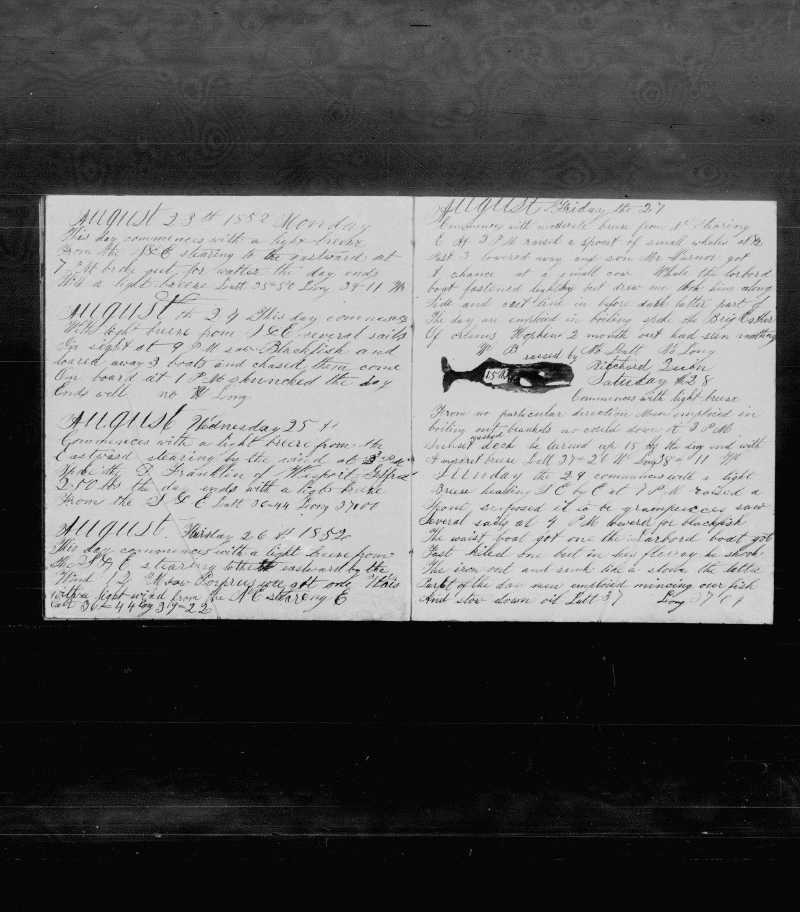 August 23th 1852 Monday
This day commences with a light breeze
From the S&E stearing to the eastward at
7 PM broke out for watter the day ends
With a light breeze Latt 35=50 Long 39-11 W
August th 24 This day commences
With light breeze from S&E several sails
In sight at 9 PM saw Blackfish and
loared away 3 boats and chased them come
On board at 1 PM the day
Ends well no Long
August Wednesday 25th
Commences with a light breeze from the
Eastward stearing by the wind at 3 PM
Spoke the B Franklin of Wesport Gifferd
2-50 the day ends with a light breeze
From the S&E Latt 36=44 Long 37=00
August Thirsday 26th 1852
This day commences with a light breeze from
the & E stearing to the eastward by the
Wind 12 M saw Porpuses got one Ends
with a light wind from the NE stearing E
Latt 36=44 Long 39=22
August Friday the 27
Commences with moderate breeze from N stearing
E At 3 PM raised a spout of small whales at
Past 3 lowered away and soon Mr Varnor got
A chance at a small cow While the lorbord
boat fastened but drew him along
Side and cut line in before dark latter part of
The day are emploid in boiling spoke the Brig Esther
Of orlines Hopkins 2 month out had seen nothing
W B raised by No Latt No Long
15 bb
Richard
Satuday th 28
Commences with light breeze
From no particular direction Men emploid in
boiling out no could down at 3 PM
Sunset washed deck he turned up 15 bb the day end with
A breeze Latt 37=26 N Long 38=11 W
Sunday the 29 commences with a light
Breeze heading S E by E at 7 PM raised a
Spout suposed it to be grampuces saw
Several sails at 9 PM lowered for blackfish
The waist boat got one the Larbord boat got
Fast kiled one but in his flurrey he shook
The iron out and sunk like a stone the latter
Part of the day men emploid mincing our fish
And stow down oil Latt 37 Long 37=04